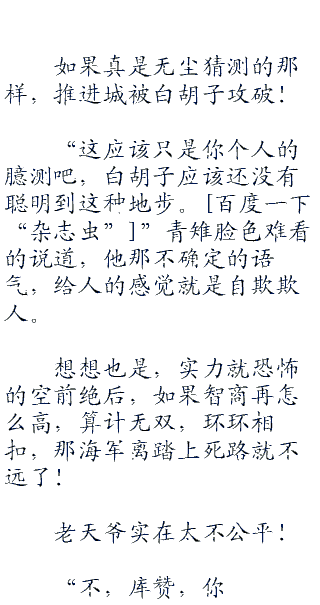 如果真是无尘猜测的那
样，推进城被白胡子攻破！
“这应该只是你个人的
臆测吧，白胡子应该还没有
聪明到这种地步。[百度一下
“杂志虫”]”青雉脸色难看
的说道，他那不确定的语
气，给人的感觉就是自欺欺
人。
想想也是，实力就恐怖
的空前绝后，如果智商再怎
么高，算计无双，环环相
扣，那海军离踏上死路就不
远了！
老天爷实在太不公平！
“不，库赞，你